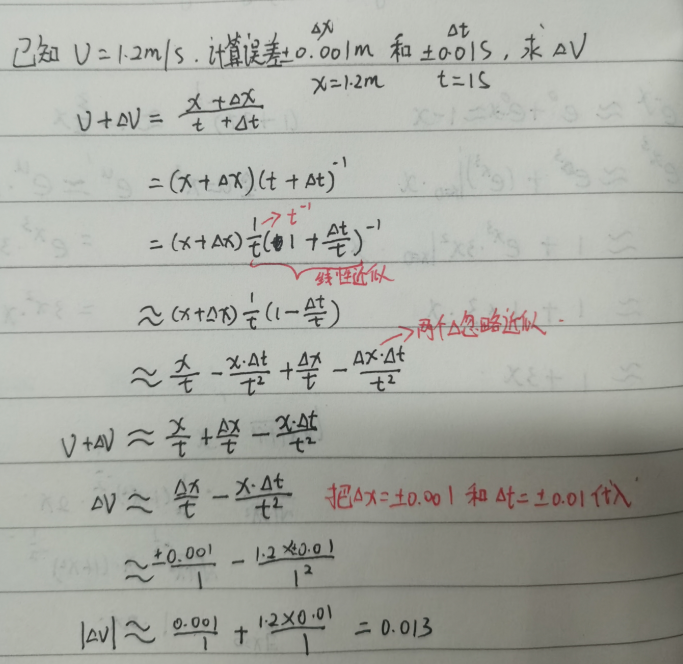 Δx Δt
已知 V=1.2m/s. 计算误差±0.001m 和 ±0.01S, 求 ΔV
x=1.2m t=1S
V+ΔV = \frac{x+Δx}{t+Δt}
= (x+Δx)(t+Δt)^{-1}
→ t^{-1}
= (x+Δx)\frac{1}{t}(1+\frac{Δt}{t})^{-1}
线性近似
≈ (x+Δx)\frac{1}{t}(1-\frac{Δt}{t})
→两个Δ忽略近似.
≈ \frac{x}{t} - \frac{x·Δt}{t^2} + \frac{Δx}{t} - \frac{Δx·Δt}{t^2}
V+ΔV ≈ \frac{x}{t} + \frac{Δx}{t} - \frac{x·Δt}{t^2}
ΔV ≈ \frac{Δx}{t} - \frac{x·Δt}{t^2} 把Δx=±0.001 和 Δt=±0.01代入
≈ \frac{±0.001}{1} - \frac{1.2×±0.01}{1^2}
|ΔV| ≈ \frac{0.001}{1} + \frac{1.2×0.01}{1} = 0.013